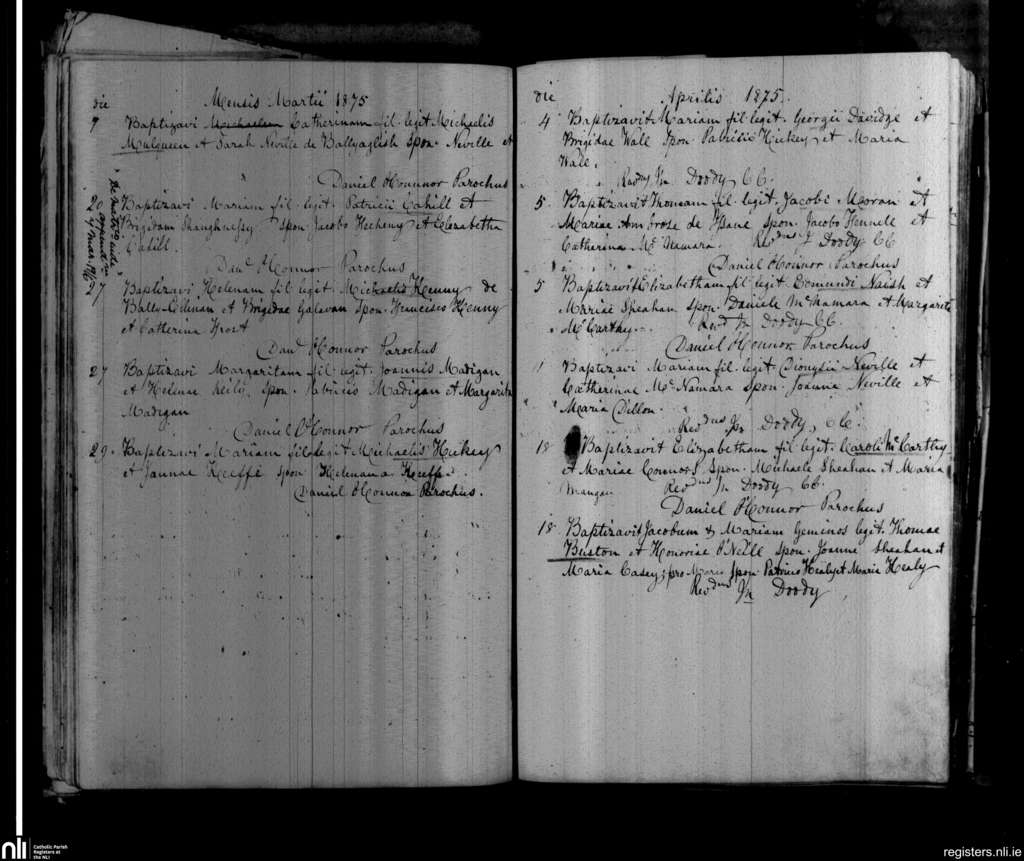 die Mensis Martii 1875
7 Baptizavi Michaelem Catherinam fil. legit. Michaelis
Mulqueen et Sarah Neville de Ballyaglish Spon. Neville et
Daniel O'Connor Parochus
20 Baptizavi Mariam fil. legit. Patricii Cahill et
Brigidam Shaughnessy Spon. Jacobo Hecheny et Elizabetha
Cahill.
Dan O'Connor Parochus
27 Baptizavi Helenam fil. legit. Michaelis Kenny de
Bally et Brigidae Galevan Spon. Francisco Kenny
et Catherina
Dan O'Connor Parochus
27 Baptizavi Margaritam fil. legit. Joannis Madigan
et Helenae Spon. Patricius Madigan et Margarita
Madigan
Daniel O'Connor Parochus
29. Baptizavi Mariam fil. legit Michaelis Hickey
et Joannae Keeffe spon. Helenana Keeffe.
Daniel O'Connor Parochus.
die Aprilis 1875.
4 Baptizavit Mariam fil. legit. Georgii Davidge et
Brigidae Wall Spon. Patritio Hickey et Maria
Wall.
Revd Jn Doody CC.
5. Baptizavit Thomam fil. legit. Jacobi Moran et
Mariae Ambrose de Spon. Jacobo Kennell et
Catherina McNamara. Revdus J Doody CC
Daniel O'Connor Parochus
5 Baptizavit Elizabetham fil. legit Edmundi Naish et
Mariae Sheahan Spon. Daniele McNamara et Margarita
McCarthy. Revd Jn Doody CC.
Daniel O'Connor Parochus
11 Baptizavi Mariam fil. legit. Dionysii Neville et
Catherinae McNamara Spon. Joanne Neville et
Maria Dillon.
Revdus Jn Doody, CC.
18 Baptizavit Elizabetham fil. legit. Caroli McCarthy
et Mariae Connors Spon. Michaele Sheahan et Maria
Mangan Revdus Jn Doody CC.
Daniel O'Connor Parochus
18 Baptizavit Jacobum & Mariam Geminos legit. Thomae
Buston et Honoriae O'Neill Spon. Joanne Sheahan et
Maria Casey; pro Maria Spon Patricio Healy et Maria Healy
Revdus Jn Doody
nli Catholic Parish
Registers at
the NLI
registers.nli.ie